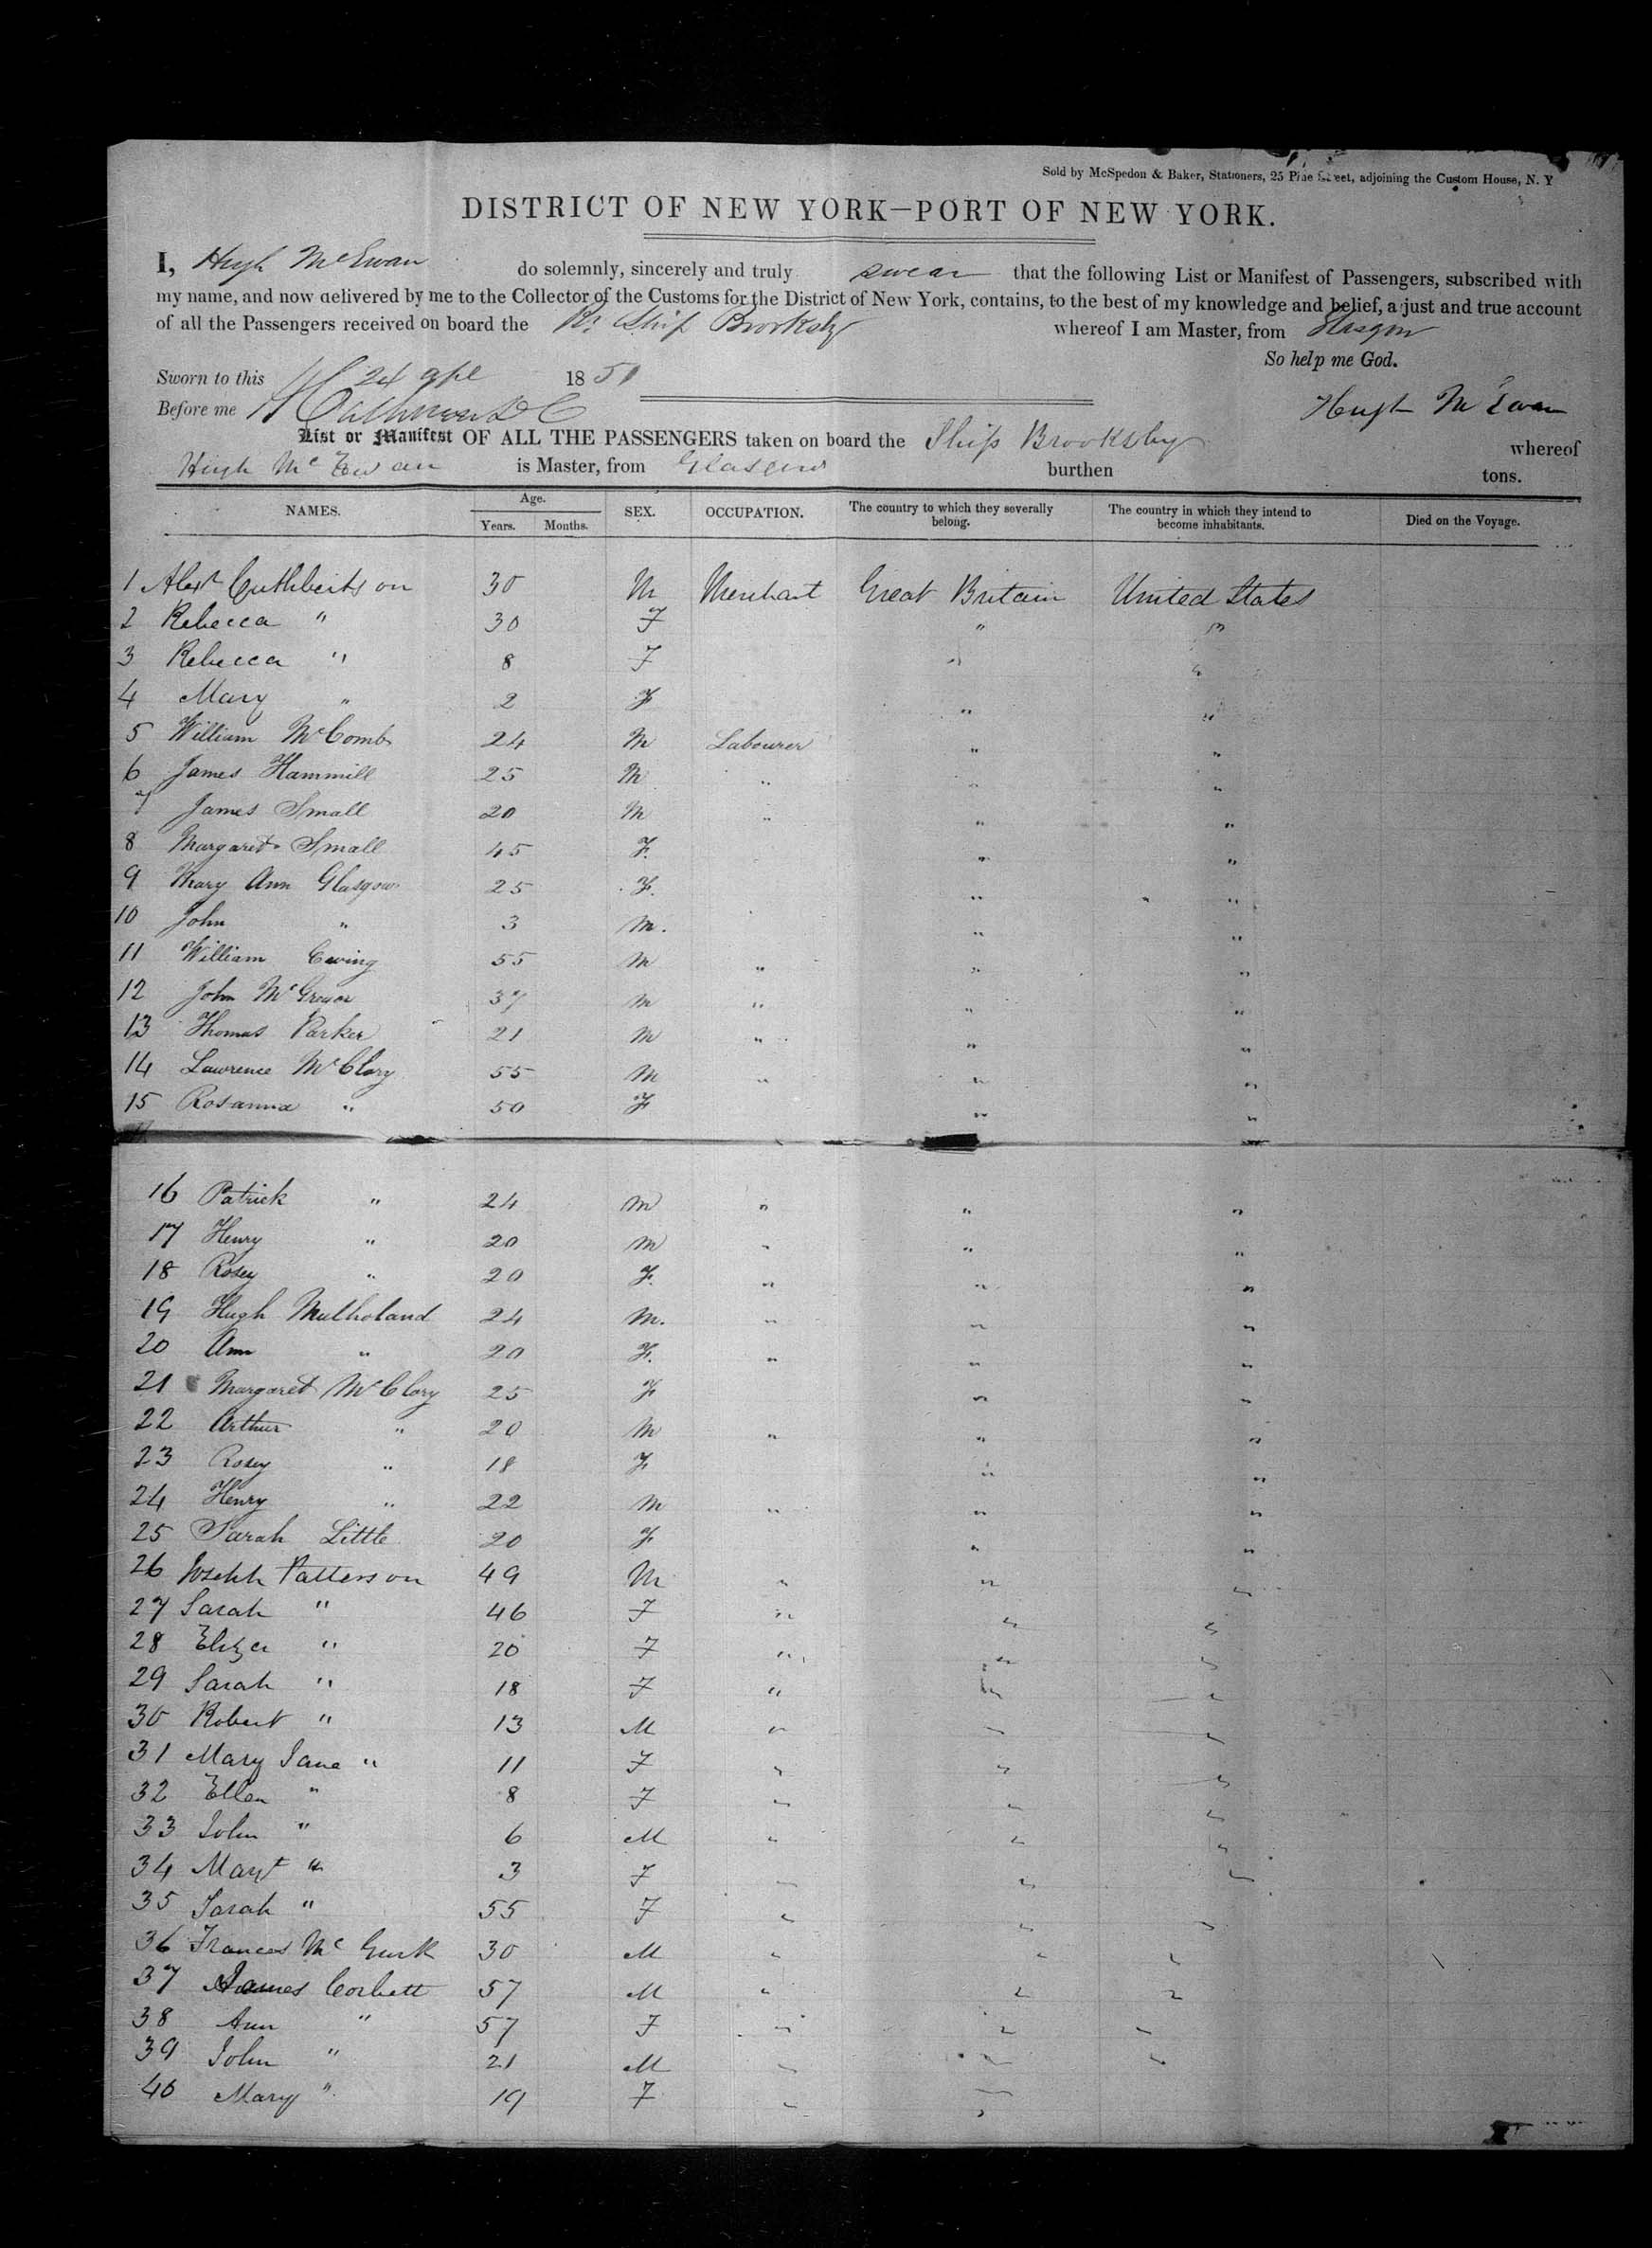 Sold by McSpedon & Baker, Stationers, 25 Pine Street, adjoining the Custom House, N. Y
DISTRICT OF NEW YORK—PORT OF NEW YORK.
I, Hugh McEwan do solemnly, sincerely and truly swear that the following List or Manifest of Passengers, subscribed with
my name, and now delivered by me to the Collector of the Customs for the District of New York, contains, to the best of my knowledge and belief, a just and true account
of all the Passengers received on board the Br Ship Brooksby whereof I am Master, from Glasgow
So help me God.
Sworn to this 24 apl 1850
Before me
Hugh McEwan
List or Manifest OF ALL THE PASSENGERS taken on board the Ship Brooksby whereof
Hugh McEwan is Master, from Glasgow burthen tons.
NAMES. Age. Years. Months. SEX. OCCUPATION. The country to which they severally belong. The country in which they intend to become inhabitants. Died on the Voyage.
1 Alexr Cuthbertson 30 M Merchant Great Britain United States
2 Rebecca " 30 F " "
3 Rebecca " 8 F " "
4 Mary " 2 F " "
5 William McComb 24 M Labourer " "
6 James Hammill 25 M " " "
7 James Small 20 M " " "
8 Margaret Small 45 F. " "
9 Mary Ann Glasgow 25 F. " "
10 John " 3 M. " "
11 William Ewing 55 M " " "
12 John McGregor 37 M " " "
13 Thomas Parker 21 M " " "
14 Lawrence McClory 55 M " " "
15 Rosanna " 50 F " "
16 Patrick " 24 M " " "
17 Henry " 20 M " " "
18 Rosey " 20 F. " " "
19 Hugh Mulholand 24 M. " " "
20 Ann " 20 F. " " "
21 Margaret McClory 25 F " "
22 Arthur " 20 M " " "
23 Rosey " 18 F " "
24 Henry " 22 M " " "
25 Sarah Little 20 F " "
26 Joseph Patterson 49 M " " "
27 Sarah " 46 F " " "
28 Eliza " 20 F " " "
29 Sarah " 18 F " " "
30 Robert " 13 M " " "
31 Mary Jane " 11 F " " "
32 Ellen " 8 F " " "
33 John " 6 M " " "
34 Margt " 3 F " " "
35 Sarah " 55 F " " "
36 Frances McGurk 30 M " " "
37 James Corbett 57 M " " "
38 Ann " 57 F " " "
39 John " 21 M " " "
40 Mary " 19 F " "